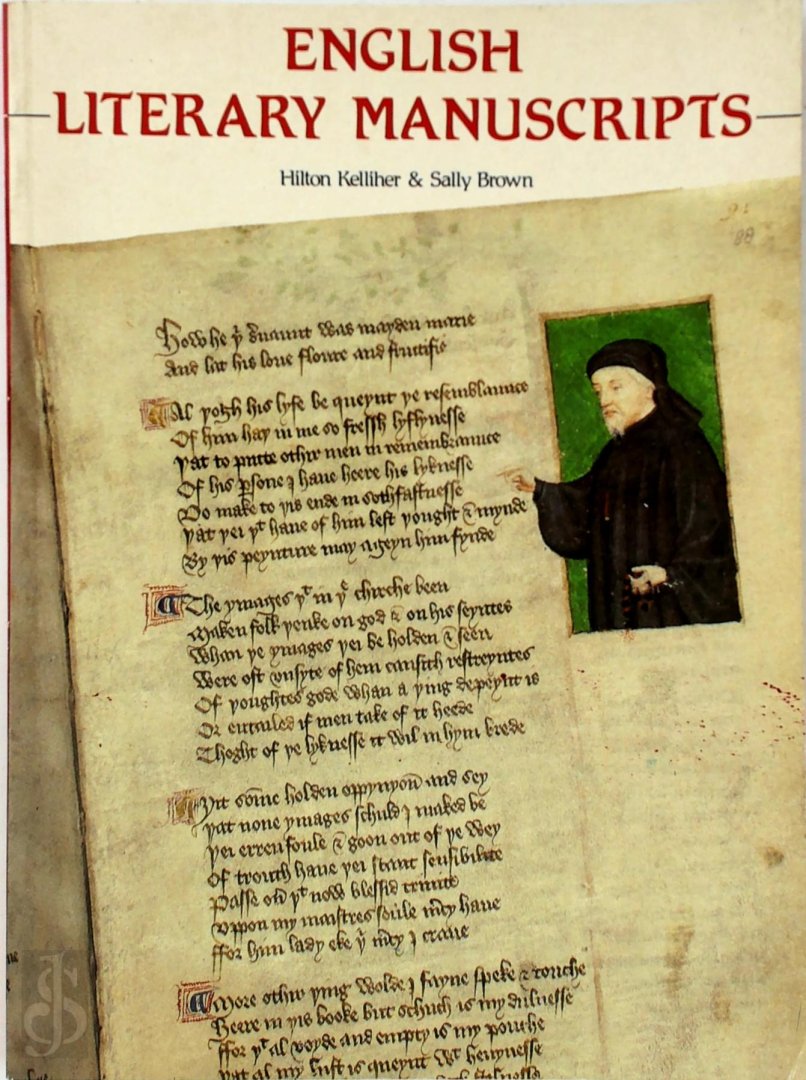 ENGLISH
LITERARY MANUSCRIPTS
Hilton Kelliher & Sally Brown
How he þͥ s̉uaunt was mayden marie
And lat his loue floure and fructifie
Al þogh his lyfe be queynt þe resemblaunce
Of him haþ in me so fressh lyflynesse
Þat to putte othir men in remembraunce
Of his ꝑsone I haue heere his lyknesse
Do make to þis ende in sothfastnesse
Þat þei þͭ haue of him left þought & mynde
By þis peynture may ageyn him fynde
The ymages þͭ in þͤ chirche been
Maken folk þenke on god & on his seyntes
Whan þe ymages þei be holden & seen
Were oft vnsyte of hem causith restreyntes
Of þoughtes gode whan a þing depeynt is
Or entailed if men take of it heede
Thoght of þe lyknesse it wil in hym brede
Yit some holden oppynyon̄ and sey
Þat none ymages schuld I maked be
Þei erren foule & goon out of þe wey
Of trouth haue þei scant sensibilite
Passe on̄ þͭ now blessid trinite
Vppon my maistres soule mͨy haue
ffor him lady eke þͥ mͨy I craue
More othir þing wolde I fayne speke & touche
Heere in þis booke but schuch is my dulnesse
ffor þͭ al voyde and empty is my pouche
Þat al my lust is queynt wͭ heuynesse